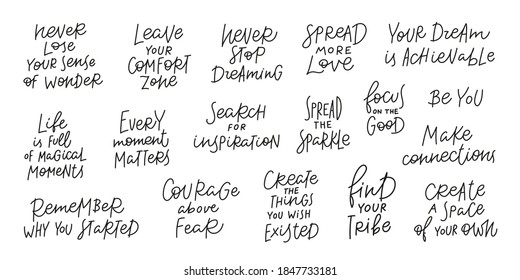 never
Lose
YOUR SENSE
of WONDER
Leave
YOUR
COMFORT
ZONE
Never
STOP
Dreaming
SPREAD
MORE
Love
YOUR DReam
is ACHIEVABLE
Life
is FULL
of MAGICAL
MOMENTS
EVERY
moment
MATTERS
SEARCH
FOR
inspiRATION
SPREAD
THE
SPARKLE
focus
ON THE
GOOD
Be YOU
Make
connections
RemeMBER
WHY YOU STARTED
COURAGE
above
FEAR
CREATE
THE
THINGS
YOU WISH
EXISTED
find
YOUR
TRiBe
CREATE
A SPACE
of YOUR OWN
shutterstock
IMAGE ID: 1847733181
www.shutterstock.com